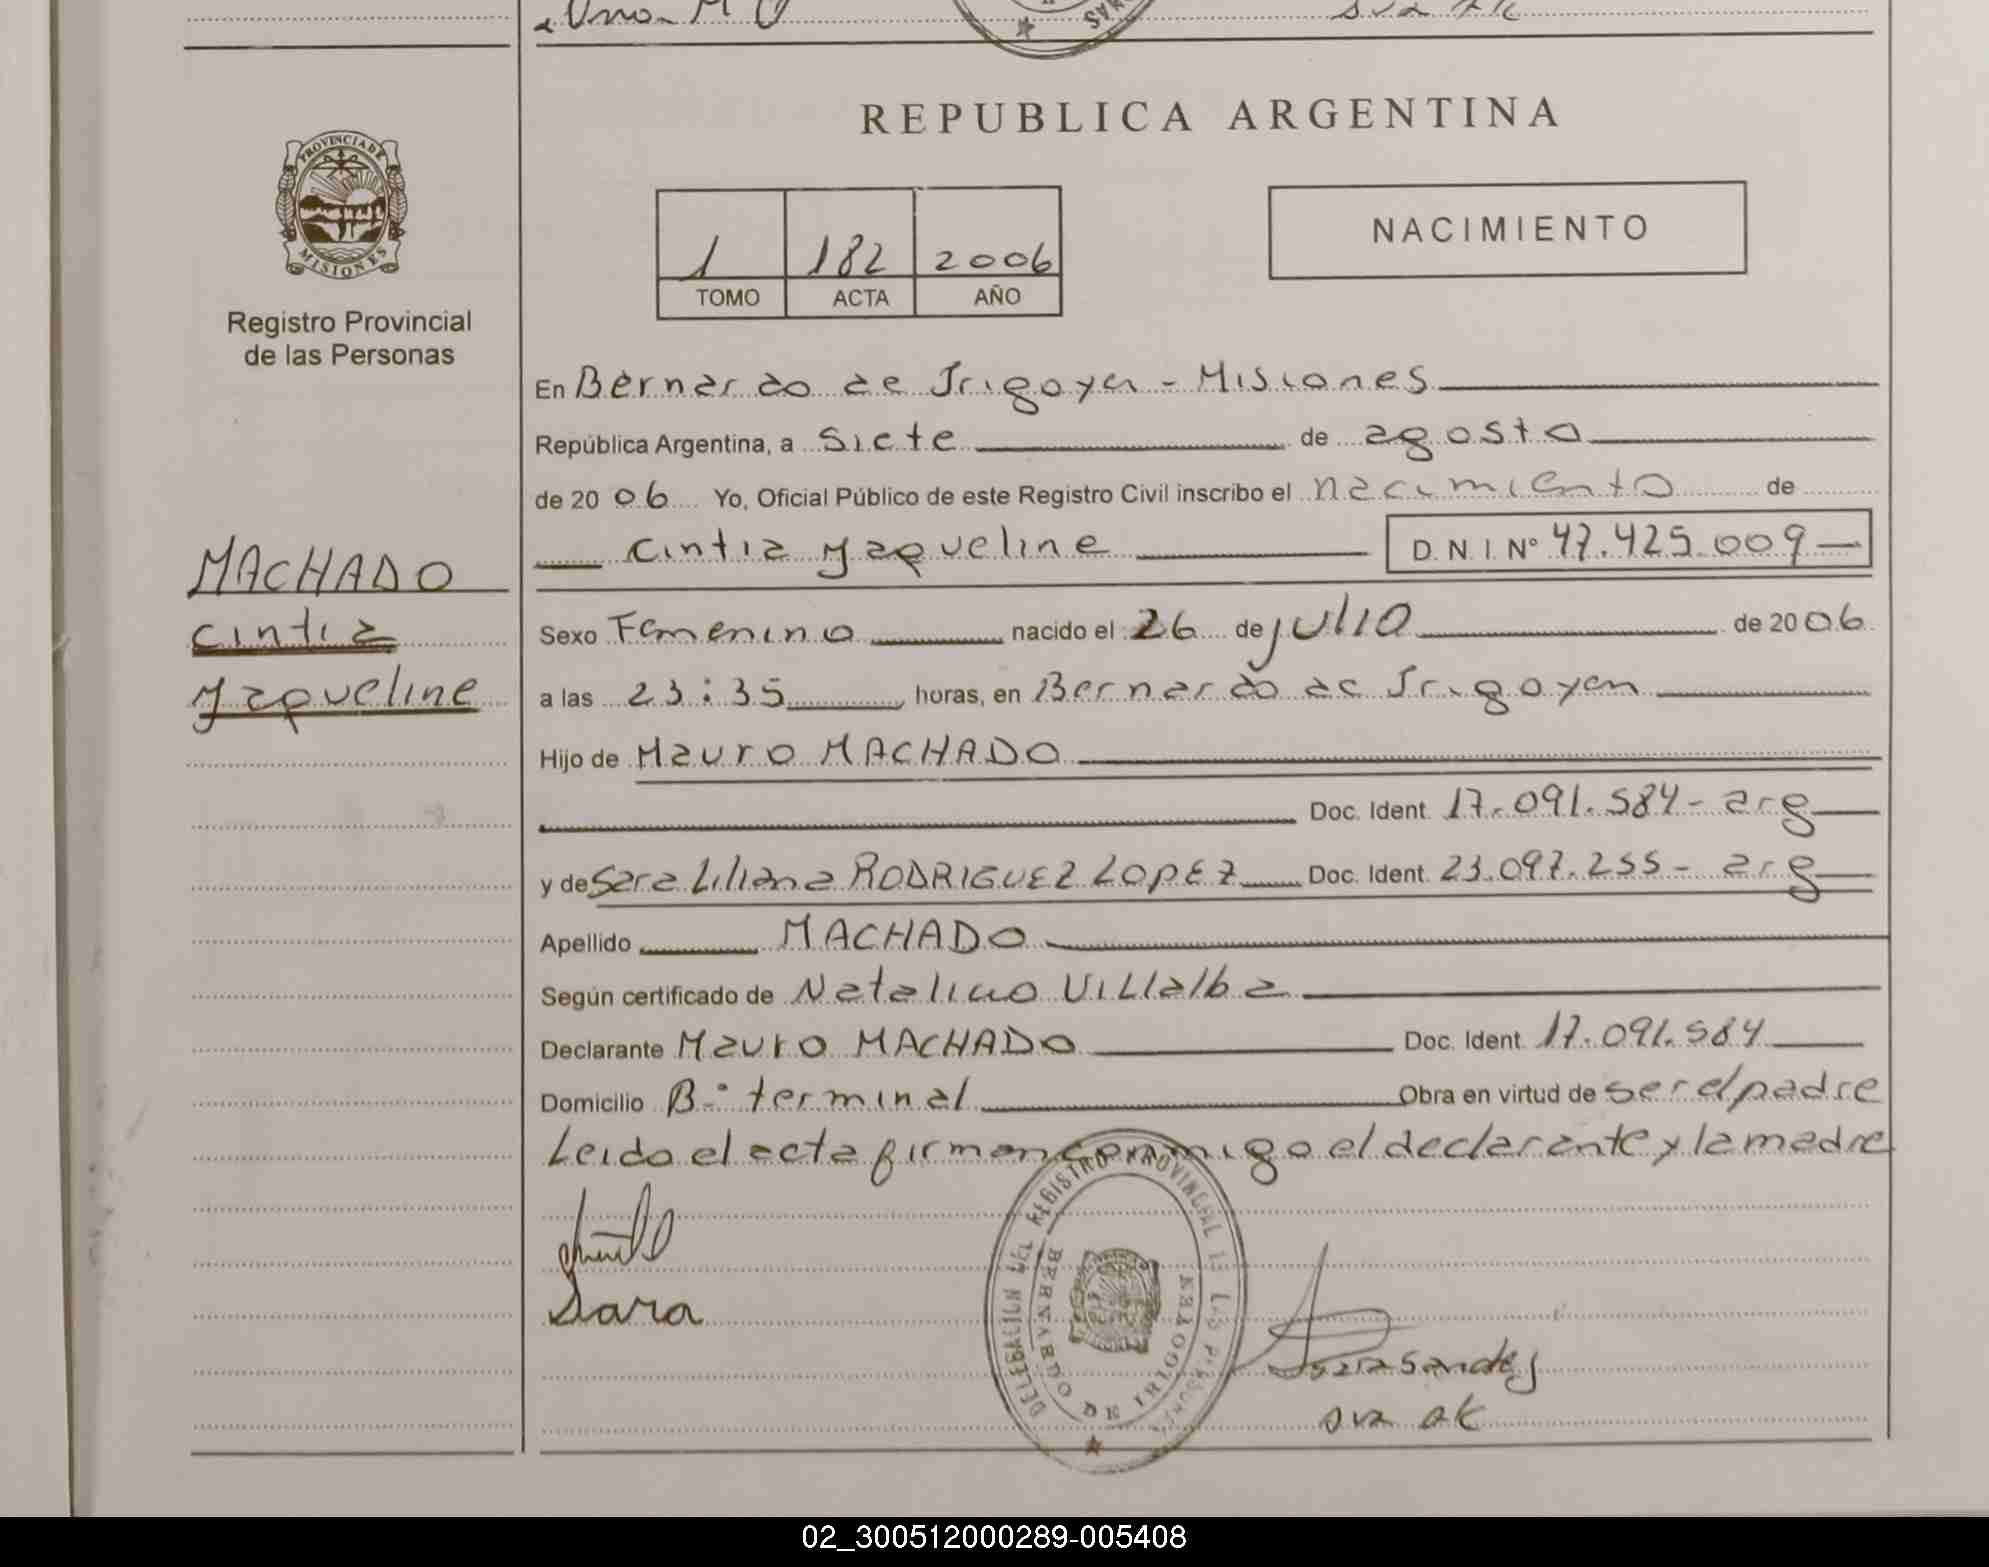 PROVINCIA DE
MISIONES
Registro Provincial
de las Personas
MACHADO
Cintia
Yaqueline
REPUBLICA ARGENTINA
1 182 2006
TOMO ACTA AÑO
NACIMIENTO
En Bernardo de Irigoyen - Misiones
República Argentina, a siete de agosto
de 20 06 Yo, Oficial Público de este Registro Civil inscribo el nacimiento de
Cintia Yaqueline D.N.I. Nº 47.425.009
Sexo Femenino nacido el 26 de julio de 20 06
a las 23:35 horas, en Bernardo de Irigoyen
Hijo de Mauro MACHADO
Doc. Ident. 17.091.584 - arg
y de Sara Liliana RODRIGUEZ LOPEZ Doc. Ident. 23.097.255 - arg
Apellido MACHADO
Según certificado de Natalino Villalba
Declarante Mauro MACHADO Doc. Ident. 17.091.584
Domicilio B.º terminal Obra en virtud de ser el padre
Leido el acta firman conmigo el declarante y la madre
Sara
DELEGACION DEL REGISTRO PROVINCIAL DE LAS PERSONAS
BERNARDO DE IRIGOYEN
02_300512000289-005408